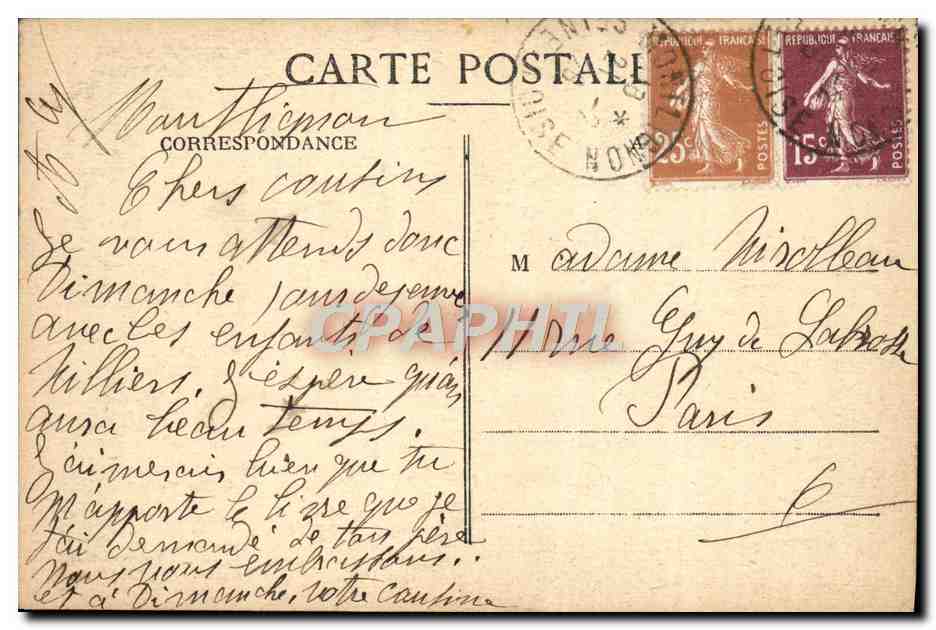 CARTE POSTALE
CORRESPONDANCE
Montlignon
Chers cousins
Je vous attends donc
Dimanche pour dejeuner
avec les enfants de
Villiers. J'espère qu'on
aura beau temps.
J'aimerais bien que tu
m'apporte le livre que je
t'ai demandé de ton père
Nous vous embrassons.
et à Dimanche, votre cousine
REPUBLIQUE FRANÇAISE
25c
POSTES
REPUBLIQUE FRANÇAISE
15c
POSTES
M adame
11 rue Guy de Labrosse
Paris
6
CPAPHIL